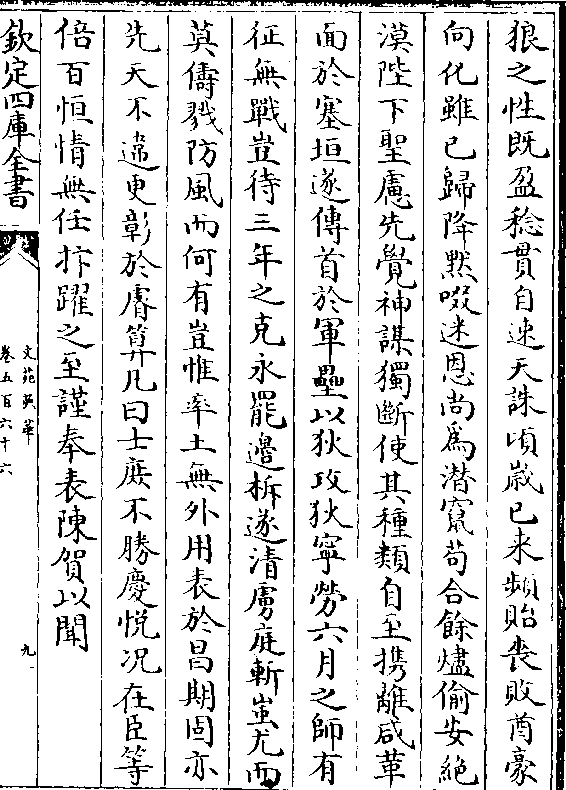 狼之性既盈稔貫自速天誅頃嵗已来頻貽喪敗酋豪
向化雖已歸降黙啜迷恩尚為潜竄茍合餘燼偷安絶
漠陛下聖慮先覺神謀獨斷使其種類自至携離咸革
面於塞垣遂傳首於軍壘以狄攻狄寧勞六月之師有
征無戰豈待三年之克永罷邊柝遂清虜庭斬蚩尤而
莫儔戮防風而何有豈惟率土無外用表於昌期固亦
先天不違更彰於睿算凡曰士庶不勝慶悦况在臣等
倍百恒情無任抃躍之至謹奉表陳賀以聞
欽定四庫全書
文苑英華
卷五百六十六
九